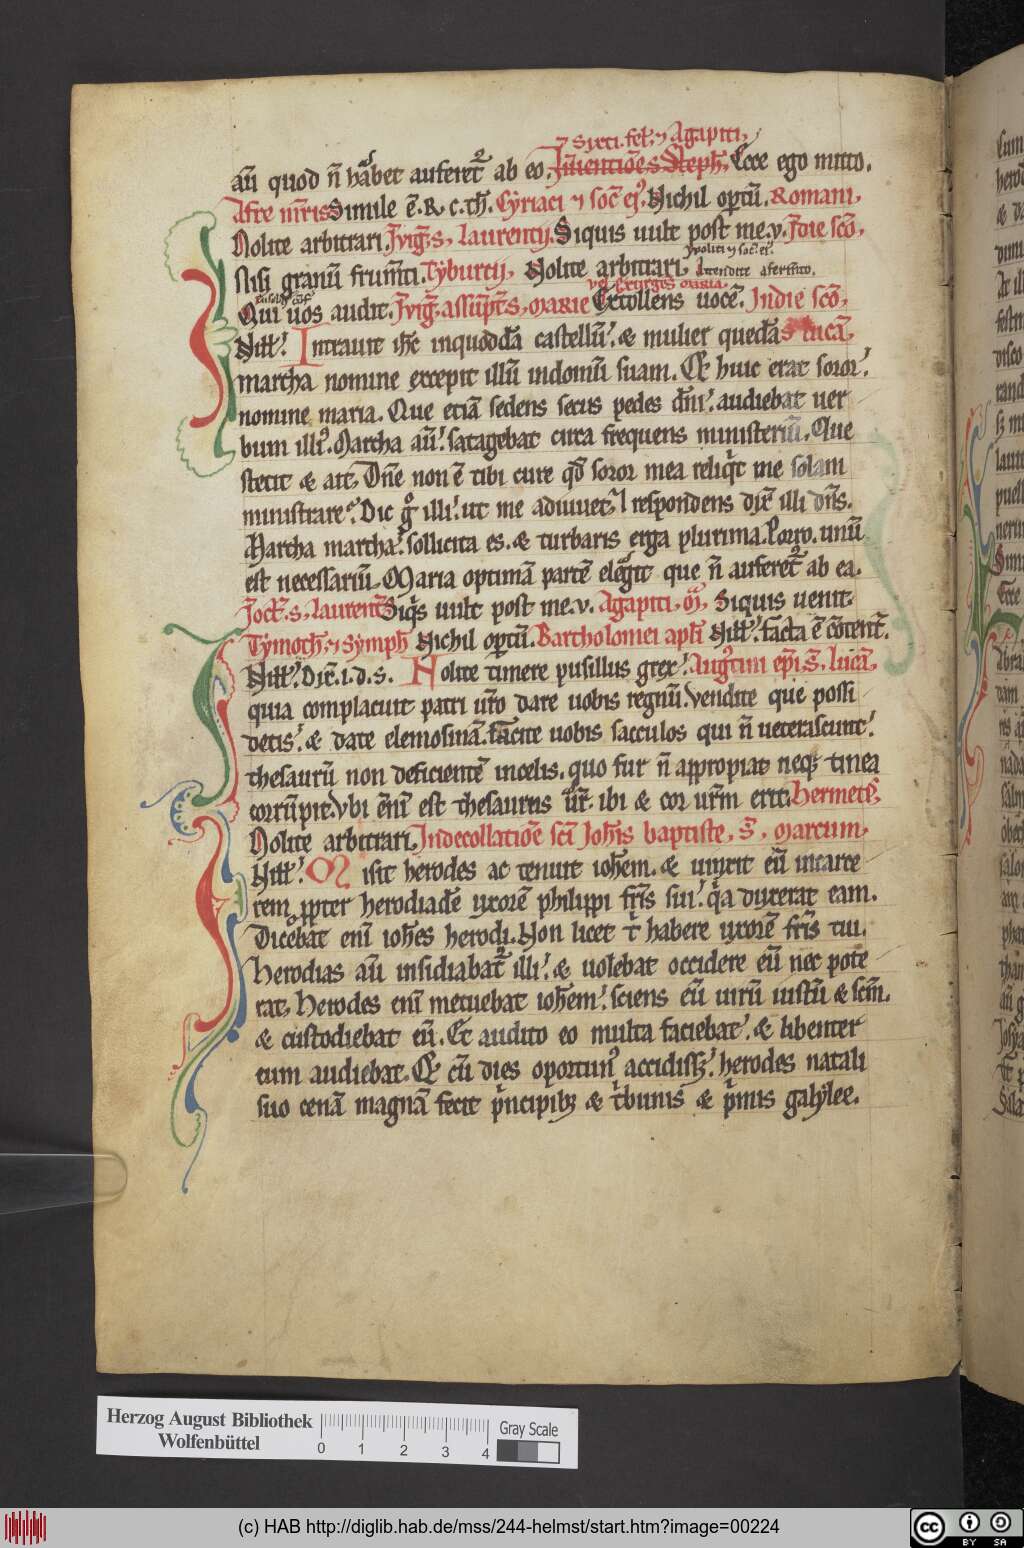 Sixti. fel. ⁊ Agapiti,
aū quod n̄ habet auferet᷑ ab eo. Inuentiōes Steph̄, Ecce ego mitto.
Afre m̄ris Simile ē. R. c. th̄. Cyriaci ⁊ soc̄ eiꝰ. Nichil optū. Romani,
Nolite arbitrari. In viḡ. s, laurentij. Siquis uult post me. v. In die scō,
ypoliti ⁊ soc̄. ei᷑.
Nisi granū frum̄ti. Tyburtij, Nolite arbitrari,
Exurgēs maria.
Qui uos audit. In viḡ. assūpt̄. s, marie Extollens uocē. In die scō,
Nīll᷑. Intrauit ih̄c inquoddā castellū. & mulier quedā s lucā,
martha nomine excepit illū indomū suam. Et huic erat soror.
nomine maria. Que etiā sedens secus pedes dn̄i. audiebat uer
bum illiꝰ. Martha aū. satagebat circa frequens ministeriū. Que
stetit & ait, Dn̄e non ē tibi cure qd̄ soror mea reliq̇t me solam
ministrare. Dic g̊ illi. ut me adiuuet. I respondens dix̄ illi dn̄s.
Martha martha. sollicita es. & turbaris erga plurima. Porro. unū
est necessariū. Maria optimā partē elegit que n̄ auferet᷑ ab ea.
In oct̄. s, laurent̄ Siq̇s uult post me. v. Agapiti, m̄, Siquis uenit.
Tymoth̄. ⁊ symph̄ Nichil optū. Bartholomei apl̄i Nīll᷑. facta ē cōtent̄.
Nīll᷑. Dix̄. i. d. s. Nolite timere pusillus grex. Augꝰtini ep̄i s̄, lucā,
quia complacuit patri ur̄o dare uobis regnū. Vendite que possi
detis. & date elemosinā. facite uobis sacculos qui n̄ ueterascunt.
thesaurū non deficientē incelis. quo fur n̄ appropiat neq; tinea
corrūpit. Vbi enī est thesaurus ur̄. ibi & cor ur̄m erit. Hermetꝭ,
Nolite arbitrari. In decollatiōe sc̄i Joh̄is baptiste, s̄, marcum,
Nīll᷑. Misit herodes ac tenuit ioh̄em. & uinxit eū incarce
rem ꝓpter herodiadē uxorē philippi fr̄is sui. q̇a duxerat eam.
Dicebat enī ioh̄es herodi. Non licet t̄ habere uxorē fr̄is tui.
Herodias aū insidiabat᷑ illi. & uolebat occidere eū nec pote
rat, Herodes enī metuebat ioh̄em. sciens eū uirū iustū & scm̄.
& custodiebat eū. Et audito eo multa faciebat. & libenter
eum audiebat. Et cū dies oportunꝰ accidiss;. herodes natali
suo cenā magnā fecit ṗncipib; & ṫbunis & ṗmis galylee.
Herzog August Bibliothek
Wolfenbüttel
0 1 2 3 4
Gray Scale
(c) HAB http://diglib.hab.de/mss/244-helmst/start.htm?image=00224
cc BY SA